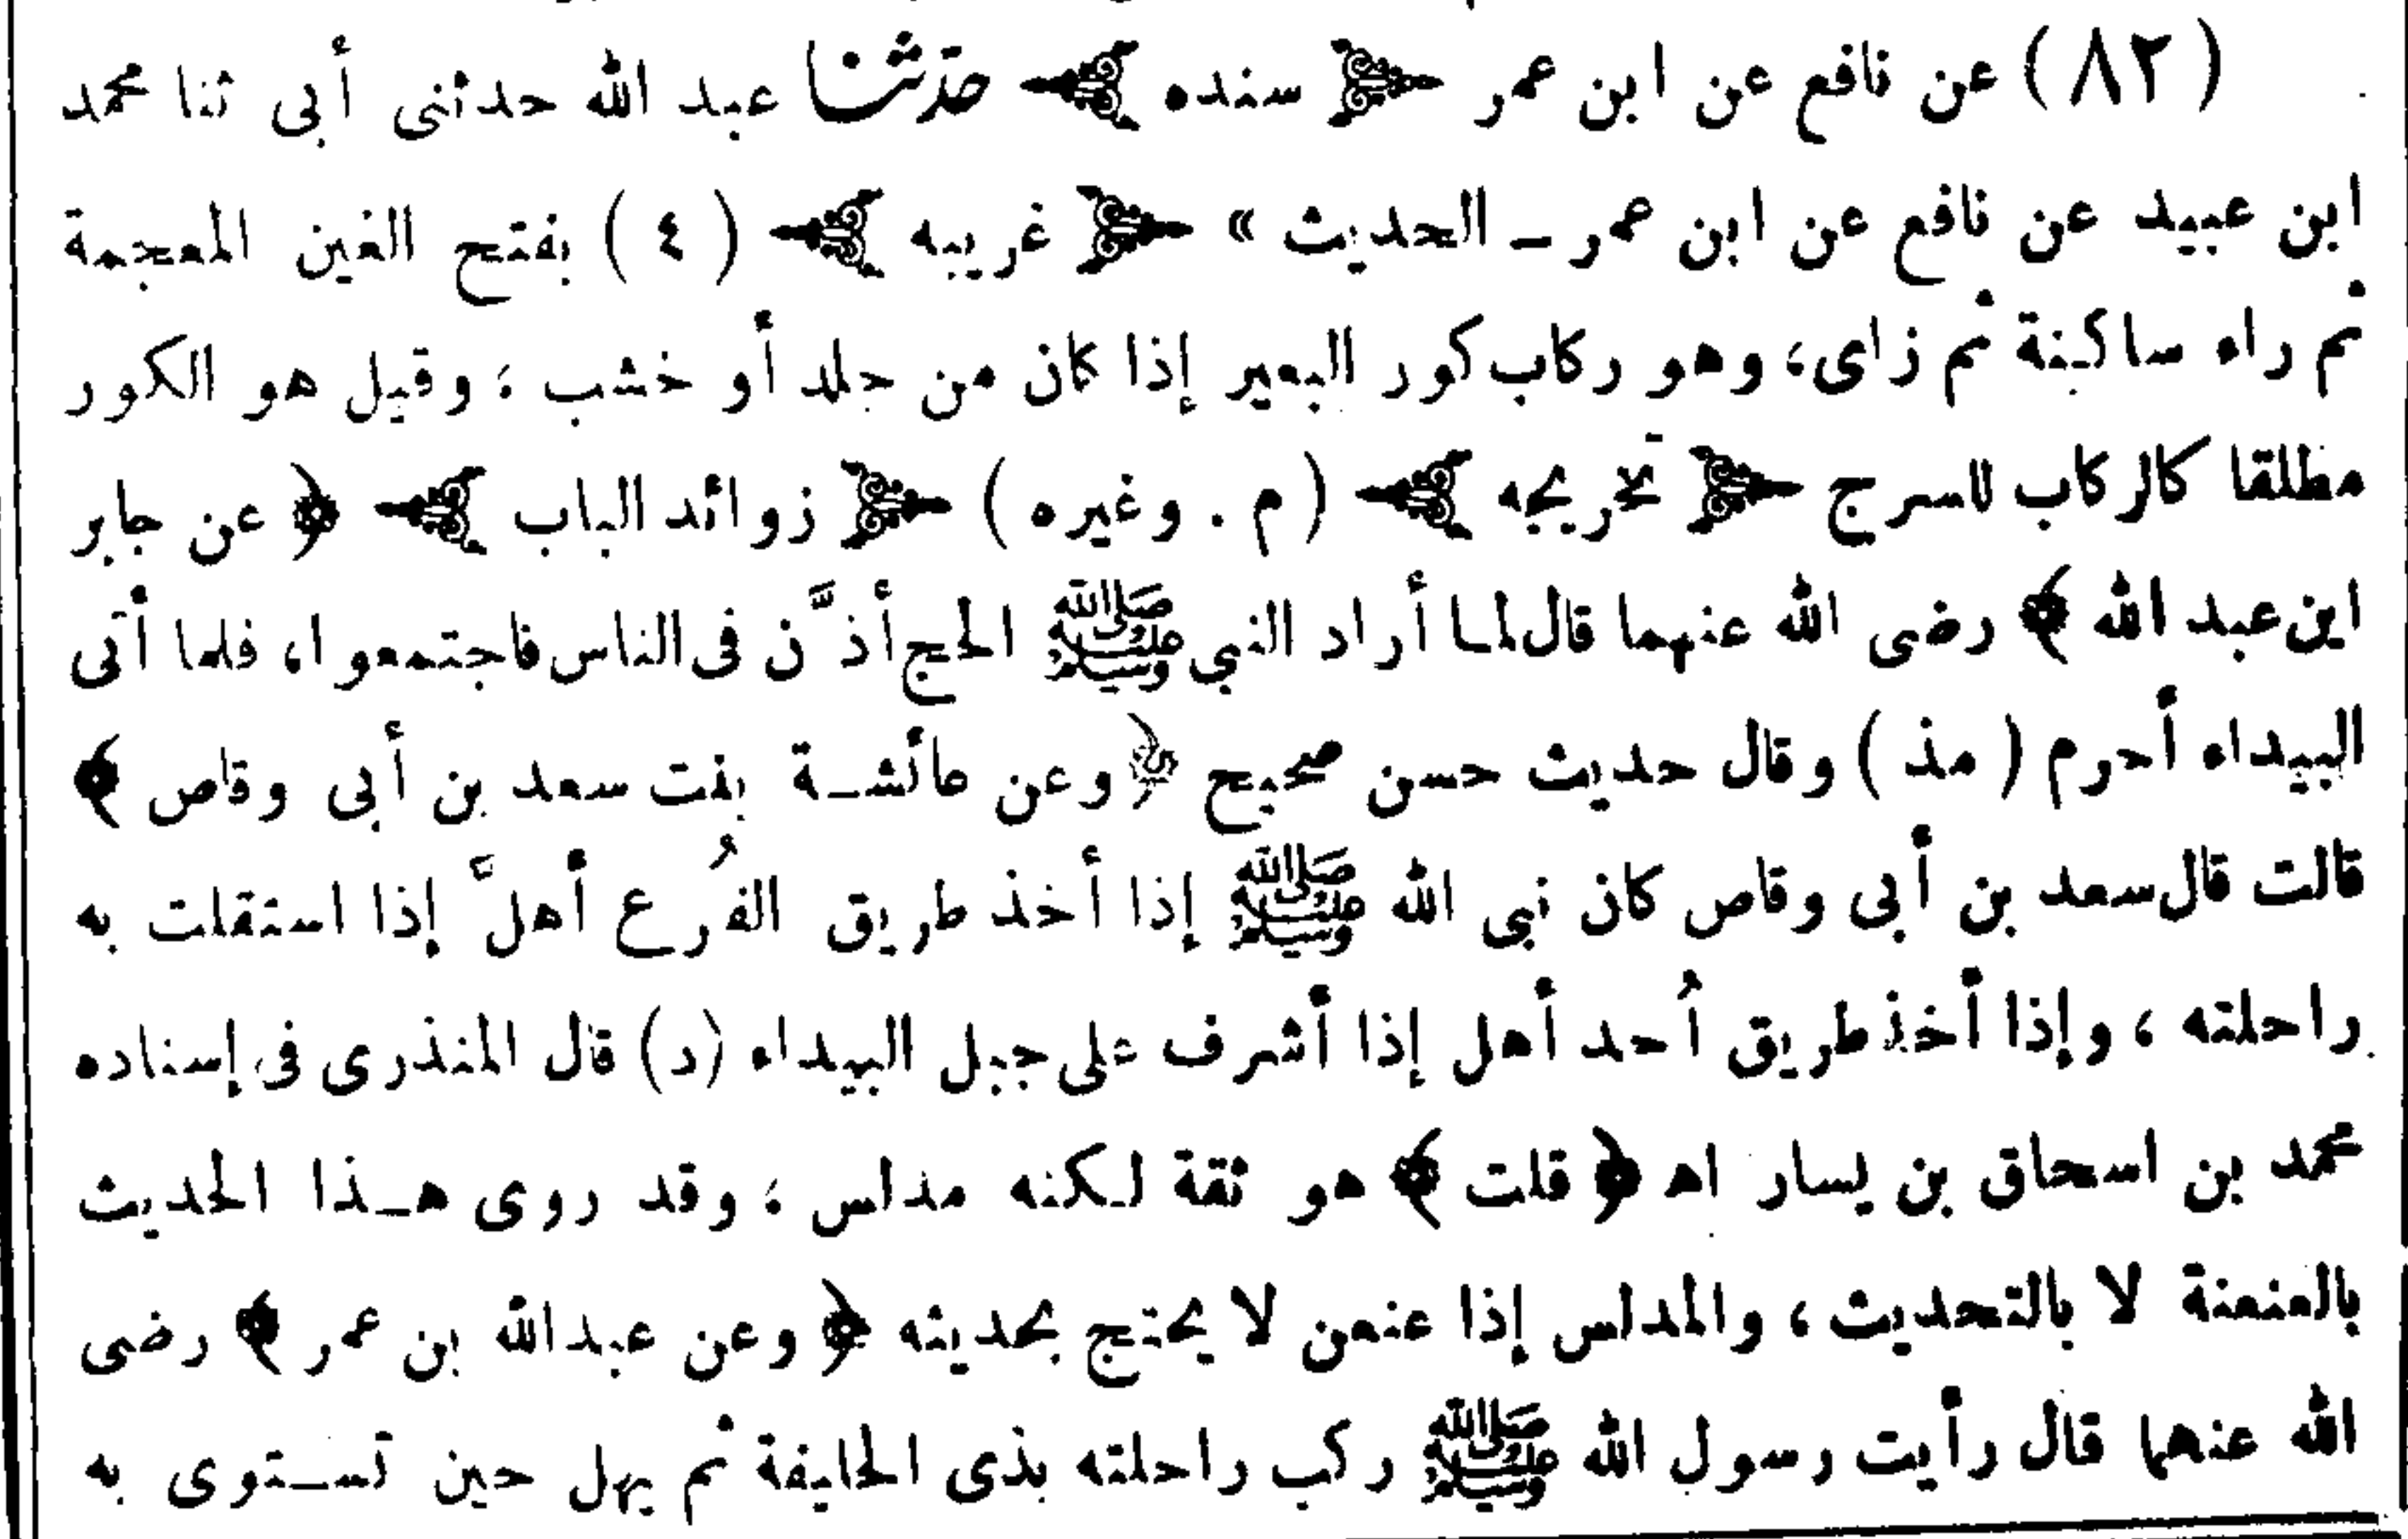 (٨٢) عن نافع عن ابن عمر ﴿ سنده ﴾ حدّثنا عبد الله حدثنى أبى ثنا محمد
ابن عبيد عن نافع عن ابن عمر ـ الحديث » ﴿ غريبه ﴾ (٤) بفتح الغين المعجمة
ثم راء ساكنة ثم زاى، وهو ركاب كور البعير إذا كان من جلد أو خشب ، وقيل هو الكور
مطلقا كالركاب للسرج ﴿ تخريجه ﴾ (م . وغيره) ﴿ زوائد الباب ﴾ ﴿ عن جابر
ابن عبد الله ﴾ رضى الله عنهما قال لما أراد النبي ﷺ الحج أذَّن فى الناس فاجتمعوا، فلما أتى
البيداء أحرم (مذ) وقال حديث حسن صحيح ﴿ وعن عائشة بنت سعد بن أبى وقاص ﴾
قالت قال سعد بن أبى وقاص كان نبى الله ﷺ إذا أخذ طريق الفُرع أهلَّ إذا استقلت به
راحلته ، وإذا أخذ طريق أُحد أهل إذا أشرف على جبل البيداء (د) قال المنذرى فى إسناده
محمد بن اسحاق بن يسار اهـ ﴿ قلت ﴾ هو ثقة لكنه مدلس ، وقد روى هـذا الحديث
بالعنعنة لا بالتحديث ، والمدلس إذا عنعن لا يحتج بحديثه ﴿ وعن عبدالله بن عمر ﴾ رضى
الله عنهما قال رأيت رسول الله ﷺ ركب راحلته بذى الحليفة ثم يهل حين تسـتوى به